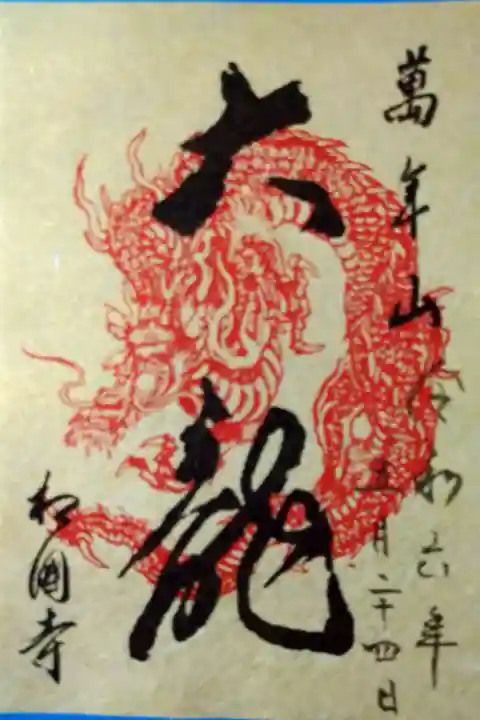 萬年山
令和六年
五月二十四日
六龍
相國寺